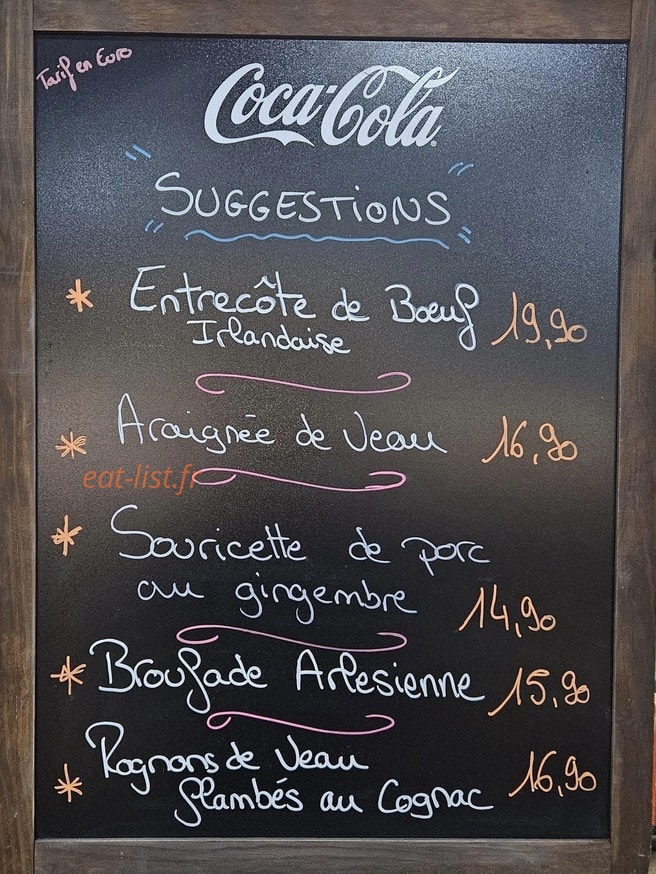 Tarif en Euro
Coca-Cola
" SUGGESTIONS "
* Entrecôte de Boeuf 19,90
Irlandaise
* Araignée de Veau 16,90
eat-list.fr
* Souricette de porc
au gingembre 14,90
* Broufade Arlesienne 15,90
* Rognons de Veau 16,90
flambés au Cognac